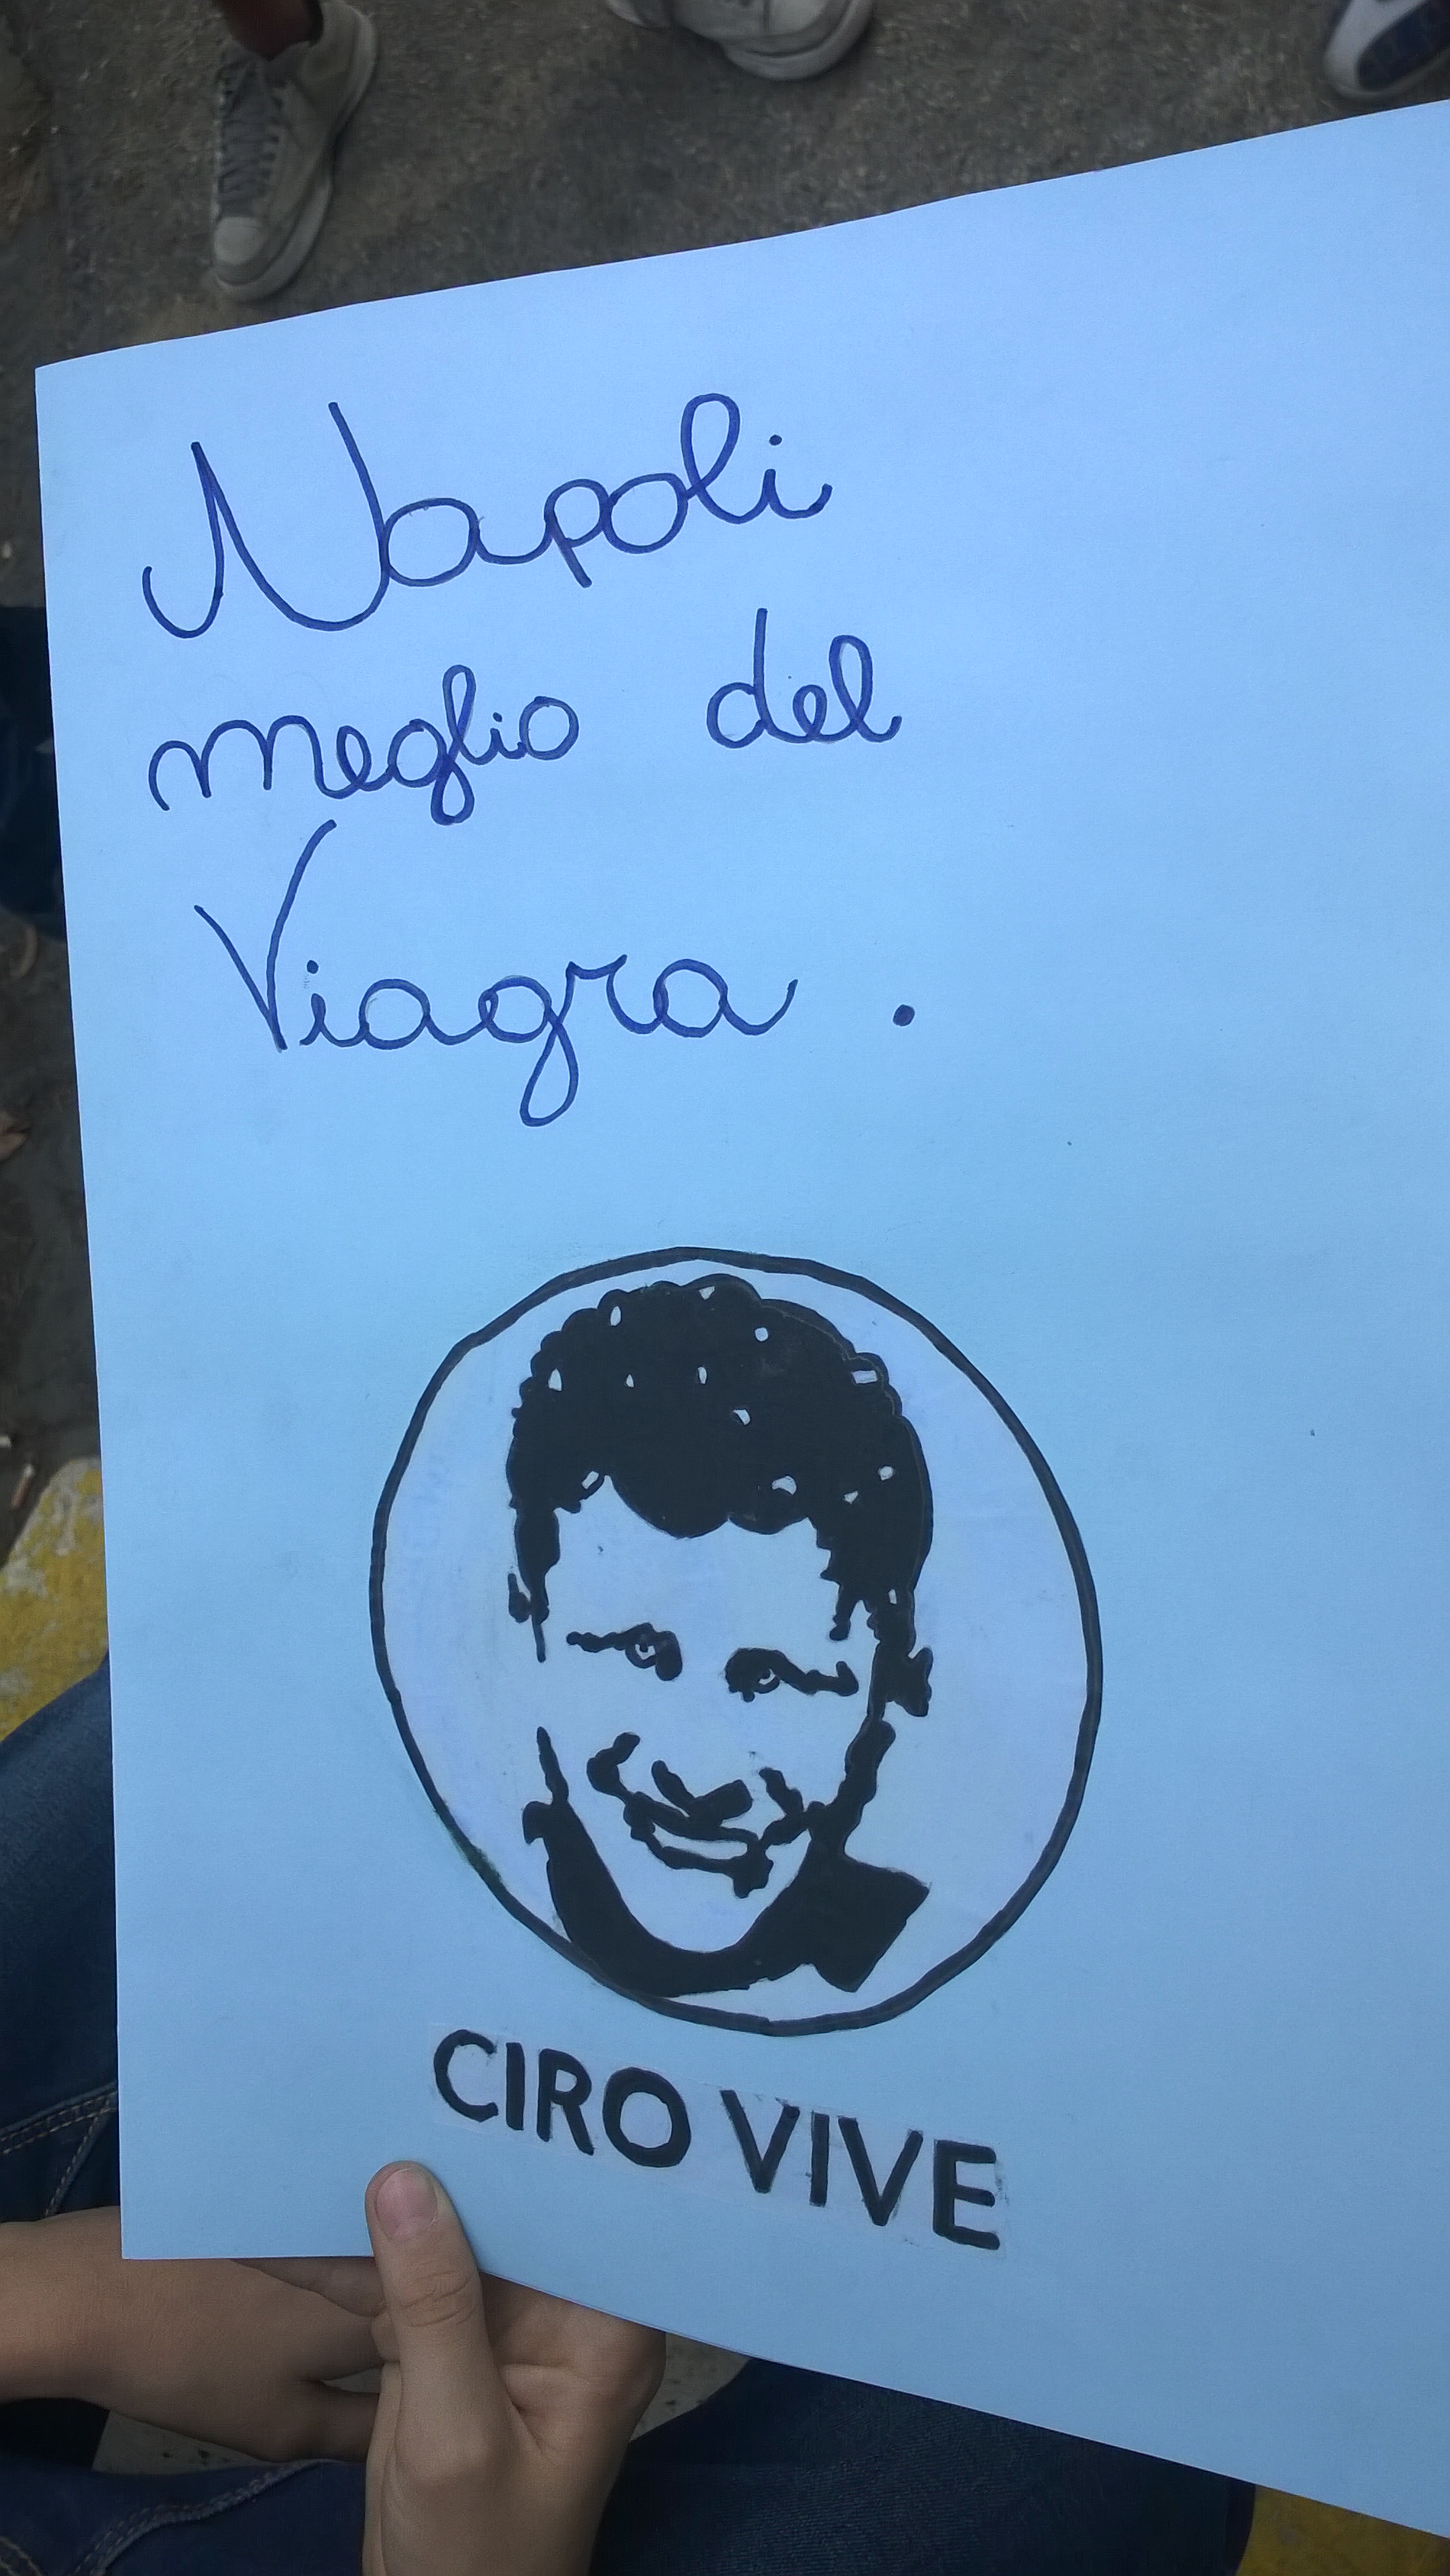 Napoli
meglio del
Viagra .
CIRO VIVE